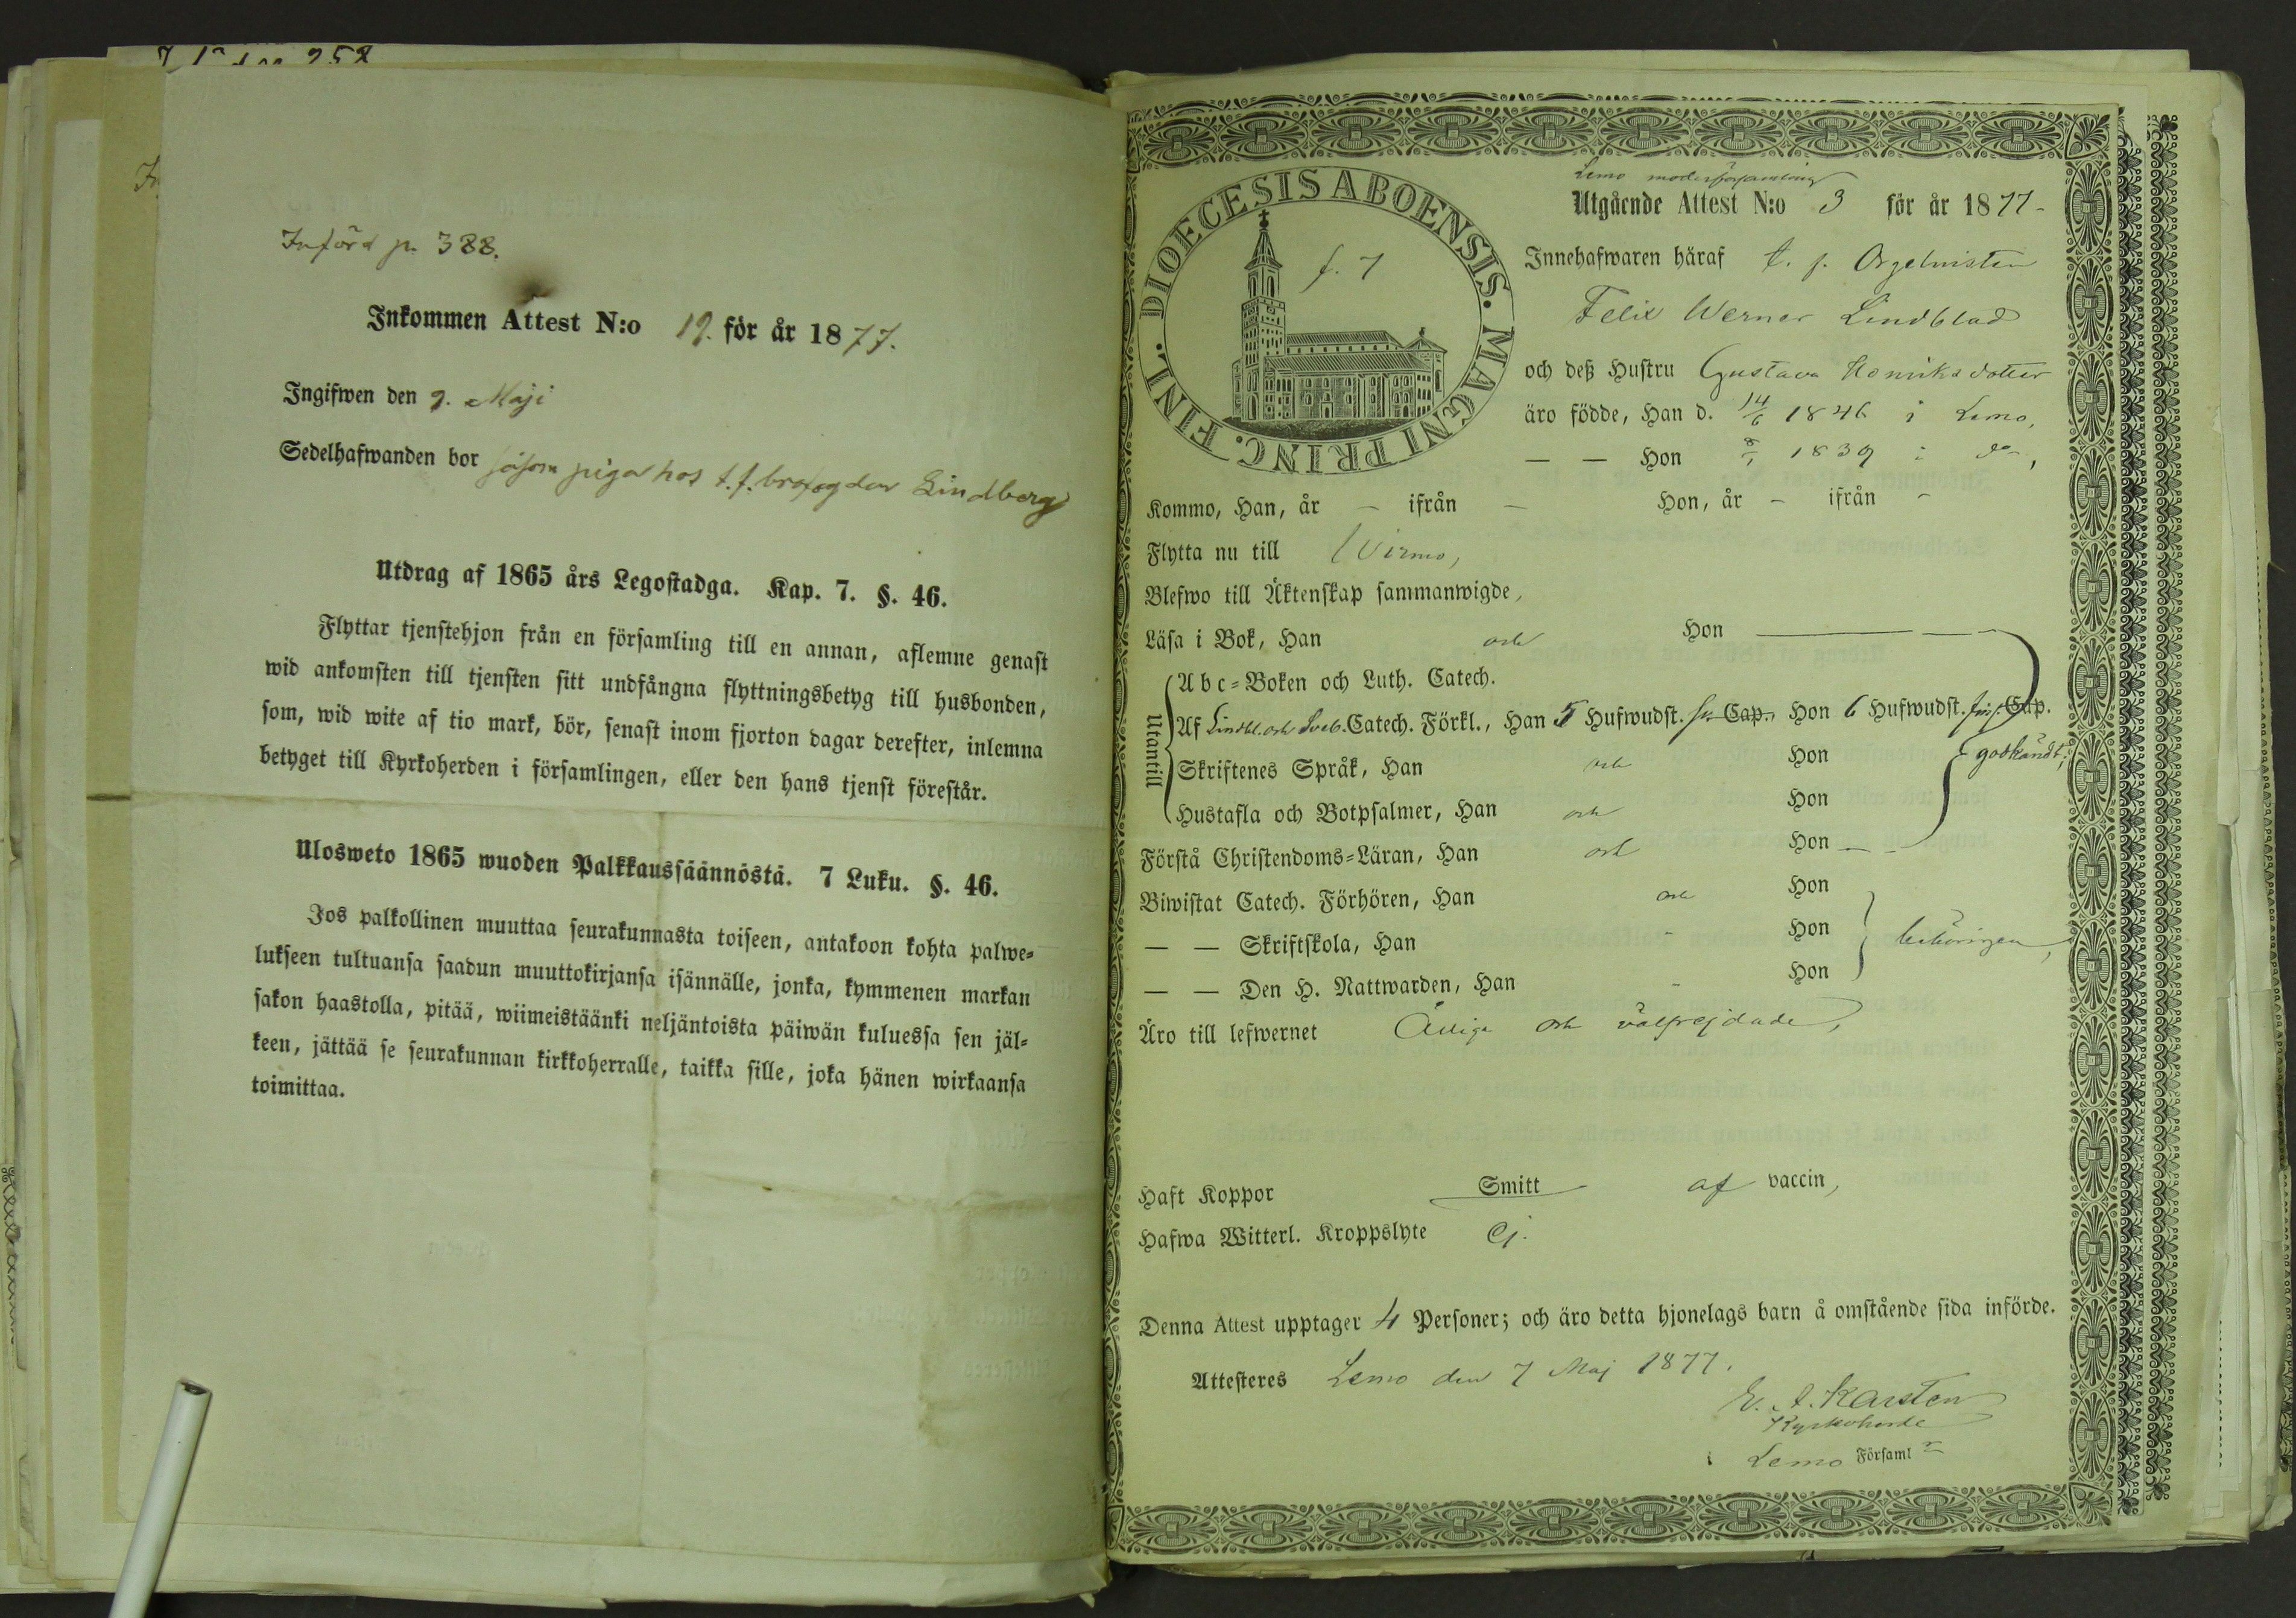 Införd p. 388.
Inkommen Attest N:o 19. för år 1877.
Ingifwen den 9. Maji
Sedelhafwanden bor såsom piga hos t.f. brofogden Lindberg
Utdrag af 1865 års Legostadga. Kap. 7. §. 46.
Flyttar tjenstehjon från en församling till en annan, aflemne genast
wid ankomsten till tjensten sitt undfångna flyttningsbetyg till husbonden,
som, wid wite af tio mark, bör, senast inom fjorton dagar derefter, inlemna
betyget till Kyrkoherden i församlingen, eller den hans tjenst förestår.
Ulosweto 1865 wuoden Palkkaussäännöstä. 7 Luku. §. 46.
Jos palkollinen muuttaa seurakunnasta toiseen, antakoon kohta palwe-
lukseen tultuansa saadun muuttokirjansa isännälle, jonka, kymmenen markan
sakon haastolla, pitää, wiimeistäänki neljäntoista päiwän kuluessa sen jäl-
keen, jättää se seurakunnan kirkkoherralle, taikka sille, joka hänen wirkaansa
toimittaa.
DIOECESIS ABOENSIS. MAGNI PRINC. FINL.
f. 7
Lemo moderförsamling
Utgående Attest N:o 3 för år 1877-
Innehafwaren häraf t. f. Orgelnisten
Felix Werner Lindblad
och deß Hustru Gustava Henriksdotter
äro födde, Han d. 14/6 1846 i Lemo,
— — Hon 8/1 1839 i do,
Kommo, Han, år – ifrån – Hon, år – ifrån –
Flytta nu till Wirmo,
Blefwo till Äktenskap sammanwigde,
Läsa i Bok, Han och Hon
Utantill
Abc-Boken och Luth. Catech.
Af Lindbl. och Sveb. Catech. Förkl., Han 5 Hufwudst. sv. Cap. Hon 6 Hufwudst. fin. Cap.
Skriftenes Språk, Han och Hon
godkändt,
Hustafla och Botpsalmer, Han och Hon
Förstå Christendoms-Läran, Han och Hon
Biwistat Catech. Förhören, Han och Hon
— — Skriftskola, Han - Hon
behörigen,
— — Den H. Nattwarden, Han - Hon
Äro till lefwernet Ärlige och välfrejdade,
Haft Koppor Smitt af vaccin,
Hafwa Witterl. Kroppslyte Ej.
Denna Attest upptager 4 Personer; och äro detta hjonelags barn å omstående sida införde.
Attesteres Lemo den 7 Maj 1877.
E. A. Karsten
Kyrkoherde
i Lemo Församl